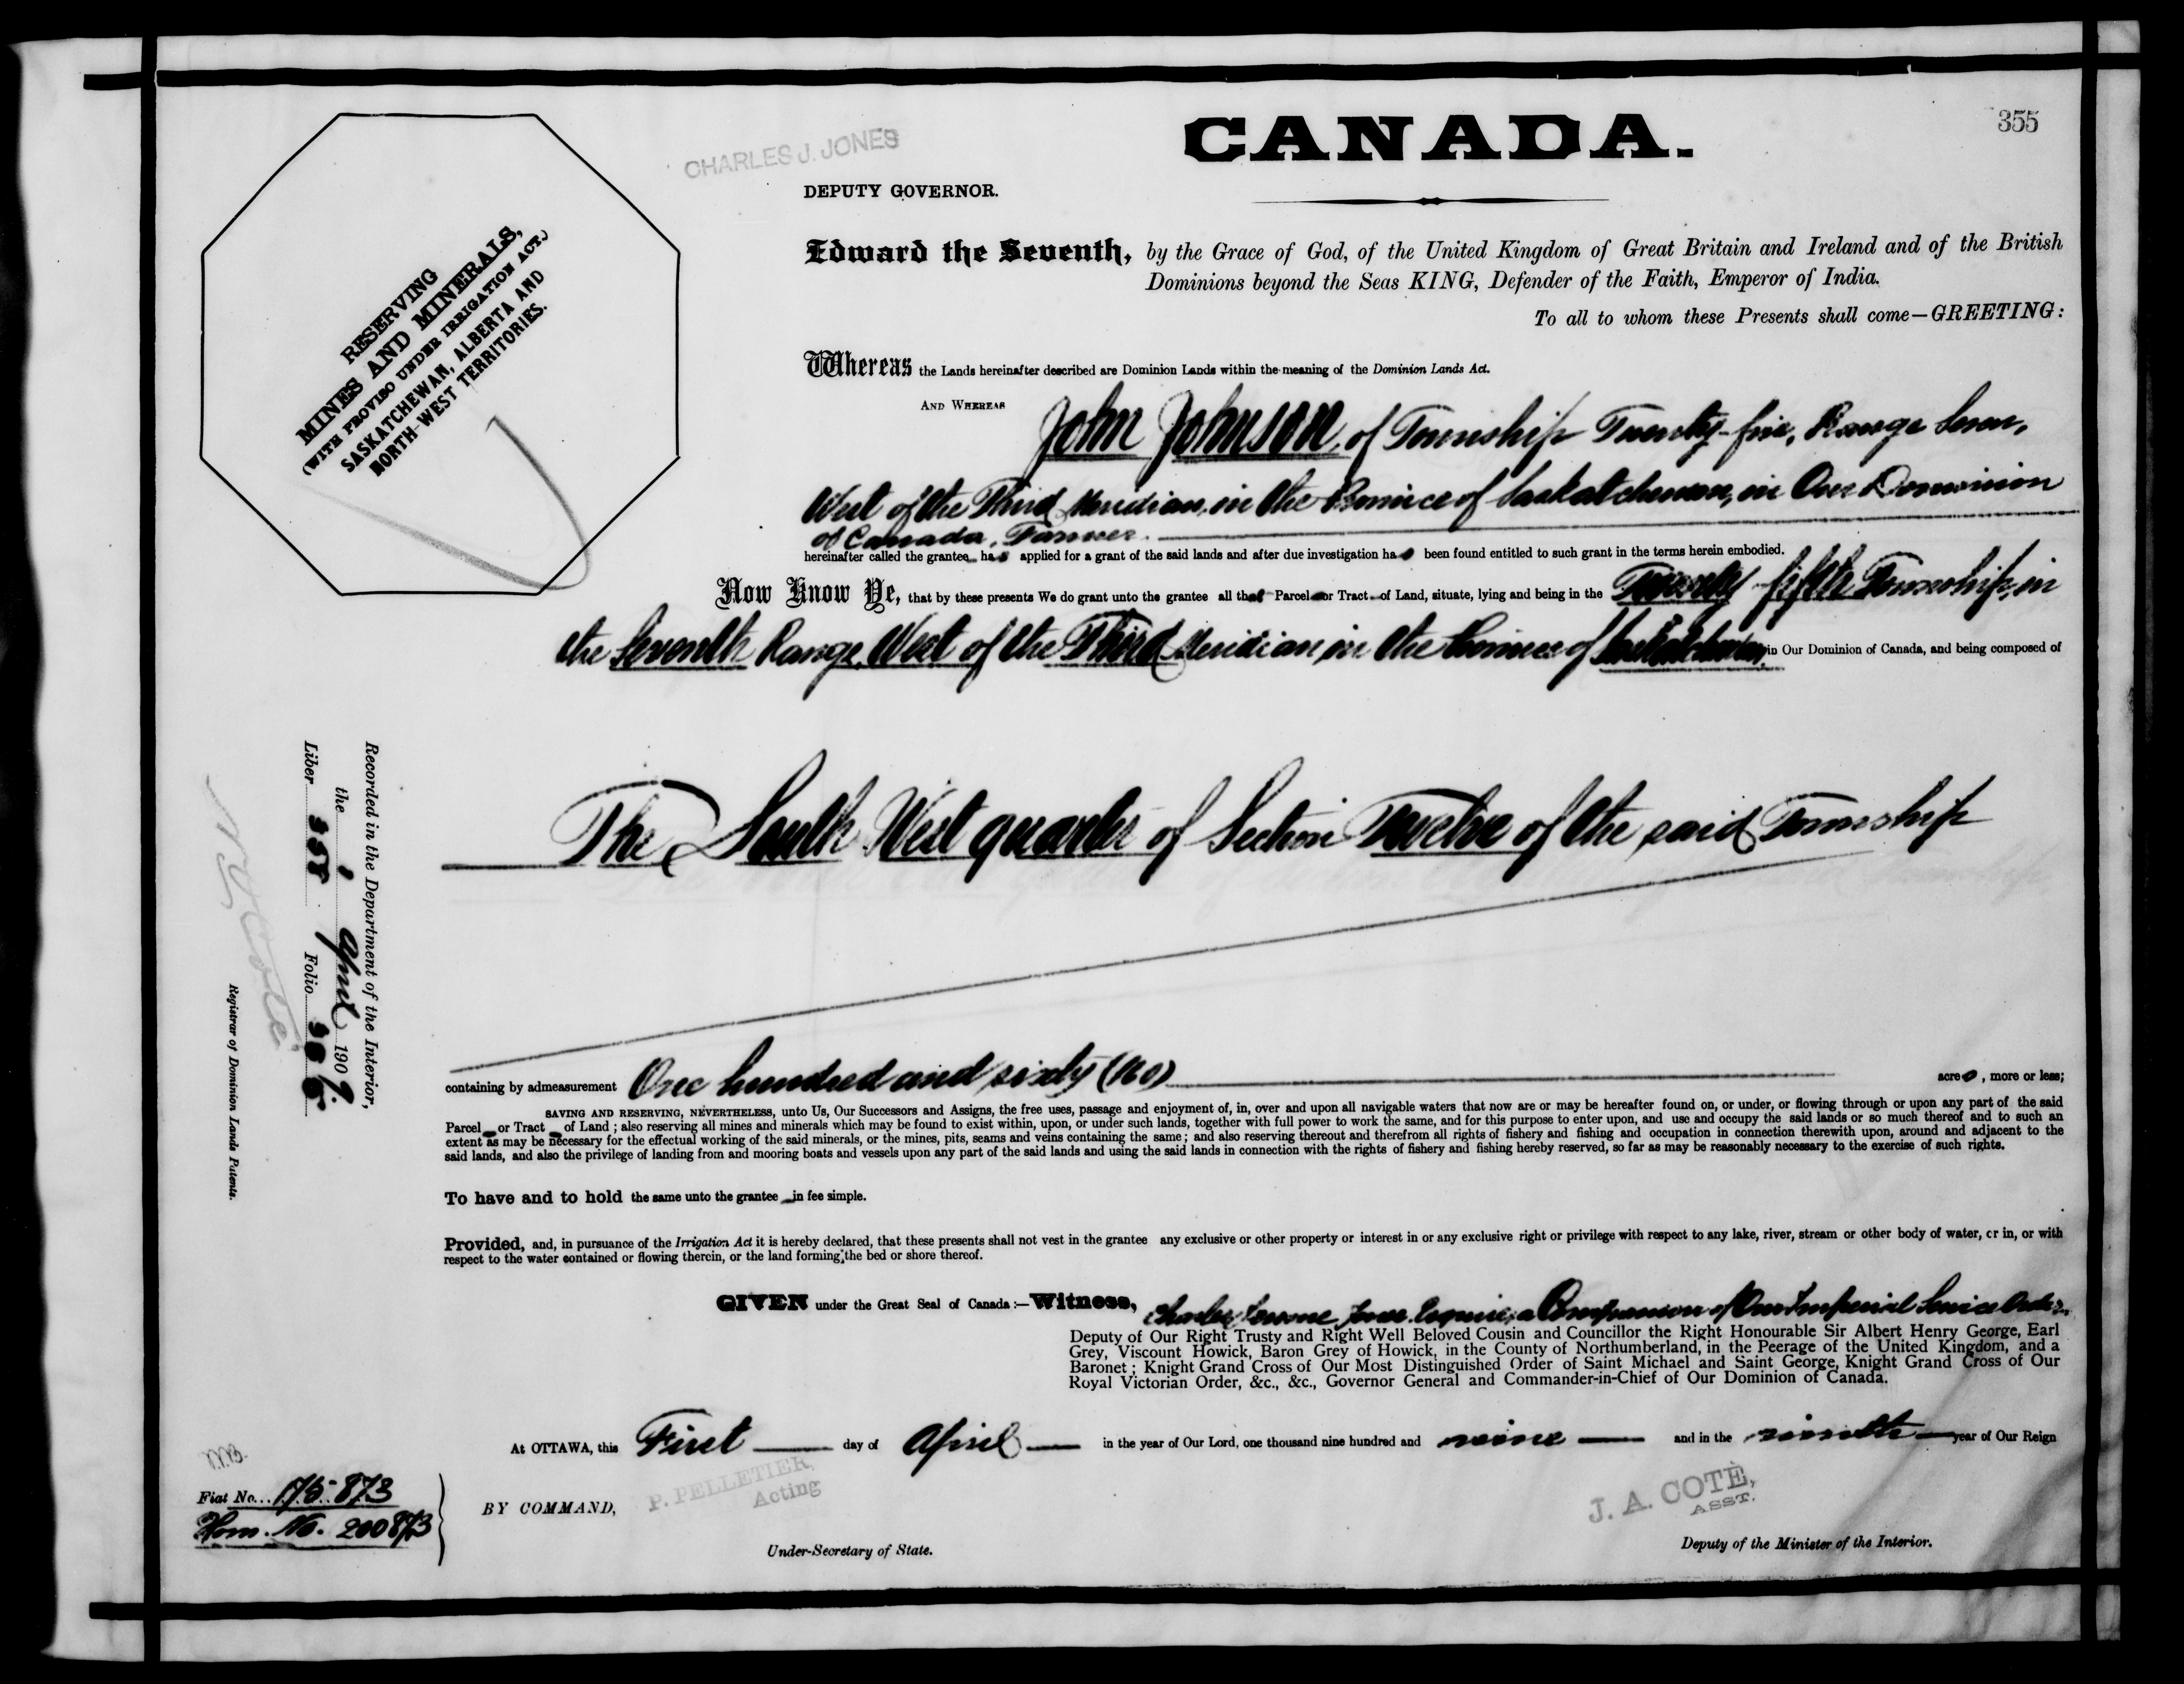 355
CANADA.
CHARLES J. JONES
DEPUTY GOVERNOR.
RESERVING
MINES AND MINERALS,
(WITH PROVISO UNDER IRRIGATION ACT.)
SASKATCHEWAN, ALBERTA AND
NORTH-WEST TERRITORIES.
Edward the Seventh, by the Grace of God, of the United Kingdom of Great Britain and Ireland and of the British
Dominions beyond the Seas KING, Defender of the Faith, Emperor of India.
To all to whom these Presents shall come—GREETING:
Whereas the Lands hereinafter described are Dominion Lands within the meaning of the Dominion Lands Act.
AND WHEREAS John Johnson, of Township Twenty-five, Range Seven,
West of the Third Meridian, in the Province of Saskatchewan, in Our Dominion
of Canada, Farmer.
hereinafter called the grantee has applied for a grant of the said lands and after due investigation has been found entitled to such grant in the terms herein embodied.
Now Know Ye, that by these presents We do grant unto the grantee all that Parcel or Tract of Land, situate, lying and being in the Twenty-fifth Township, in
the Seventh Range, West of the Third Meridian, in the Province of Saskatchewan, in Our Dominion of Canada, and being composed of
The South West quarter of Section Twelve of the said Township
containing by admeasurement One hundred and sixty (160) acres, more or less;
SAVING AND RESERVING, NEVERTHELESS, unto Us, Our Successors and Assigns, the free uses, passage and enjoyment of, in, over and upon all navigable waters that now are or may be hereafter found on, or under, or flowing through or upon any part of the said
Parcel or Tract of Land; also reserving all mines and minerals which may be found to exist within, upon, or under such lands, together with full power to work the same, and for this purpose to enter upon, and use and occupy the said lands or so much thereof and to such an
extent as may be necessary for the effectual working of the said minerals, or the mines, pits, seams and veins containing the same; and also reserving thereout and therefrom all rights of fishery and fishing and occupation in connection therewith upon, around and adjacent to the
said lands, and also the privilege of landing from and mooring boats and vessels upon any part of the said lands and using the said lands in connection with the rights of fishery and fishing hereby reserved, so far as may be reasonably necessary to the exercise of such rights.
To have and to hold the same unto the grantee in fee simple.
Provided, and, in pursuance of the Irrigation Act it is hereby declared, that these presents shall not vest in the grantee any exclusive or other property or interest in or any exclusive right or privilege with respect to any lake, river, stream or other body of water, or in, or with
respect to the water contained or flowing therein, or the land forming the bed or shore thereof.
GIVEN under the Great Seal of Canada:—Witness, Charles Jones, Esquire, a Companion of Our Imperial Service Order,
Deputy of Our Right Trusty and Right Well Beloved Cousin and Councillor the Right Honourable Sir Albert Henry George, Earl
Grey, Viscount Howick, Baron Grey of Howick, in the County of Northumberland, in the Peerage of the United Kingdom, and a
Baronet; Knight Grand Cross of Our Most Distinguished Order of Saint Michael and Saint George, Knight Grand Cross of Our
Royal Victorian Order, &c., &c., Governor General and Commander-in-Chief of Our Dominion of Canada.
At OTTAWA, this First day of April in the year of Our Lord, one thousand nine hundred and nine and in the ninth year of Our Reign
BY COMMAND,
P. PELLETIER,
Acting
Under-Secretary of State.
J. A. COTÉ,
ASST.
Deputy of the Minister of the Interior.
Fiat No. 175873
Hom. No. 200873
Recorded in the Department of the Interior,
the 1 April 1909.
Liber 358 Folio 355
N. O. Coté
Registrar of Dominion Lands Patents.